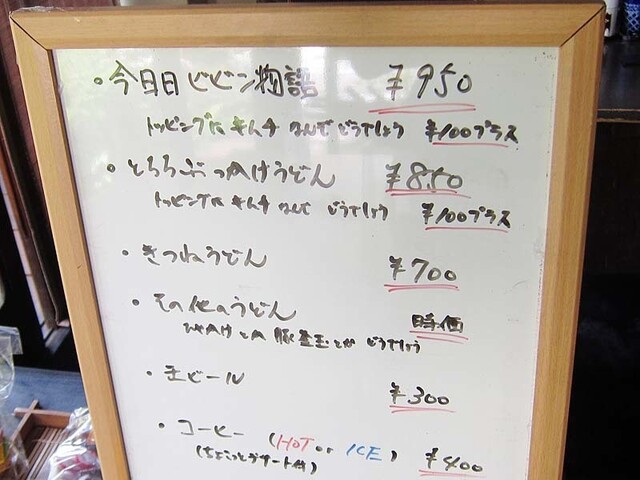 ・今日日ビビン物語 ¥950
トッピングにキムチなんてどうでしょう ¥100プラス
・とろろぶっかけうどん ¥850
トッピングにキムチなんてどうでしょう ¥100プラス
・きつねうどん ¥700
・その他のうどん 時価
ひやかけとか 豚釜玉とか どうでしょう
・生ビール ¥300
・コーヒー (HOT or ICE) ¥400
(ちょこっとデザート付)